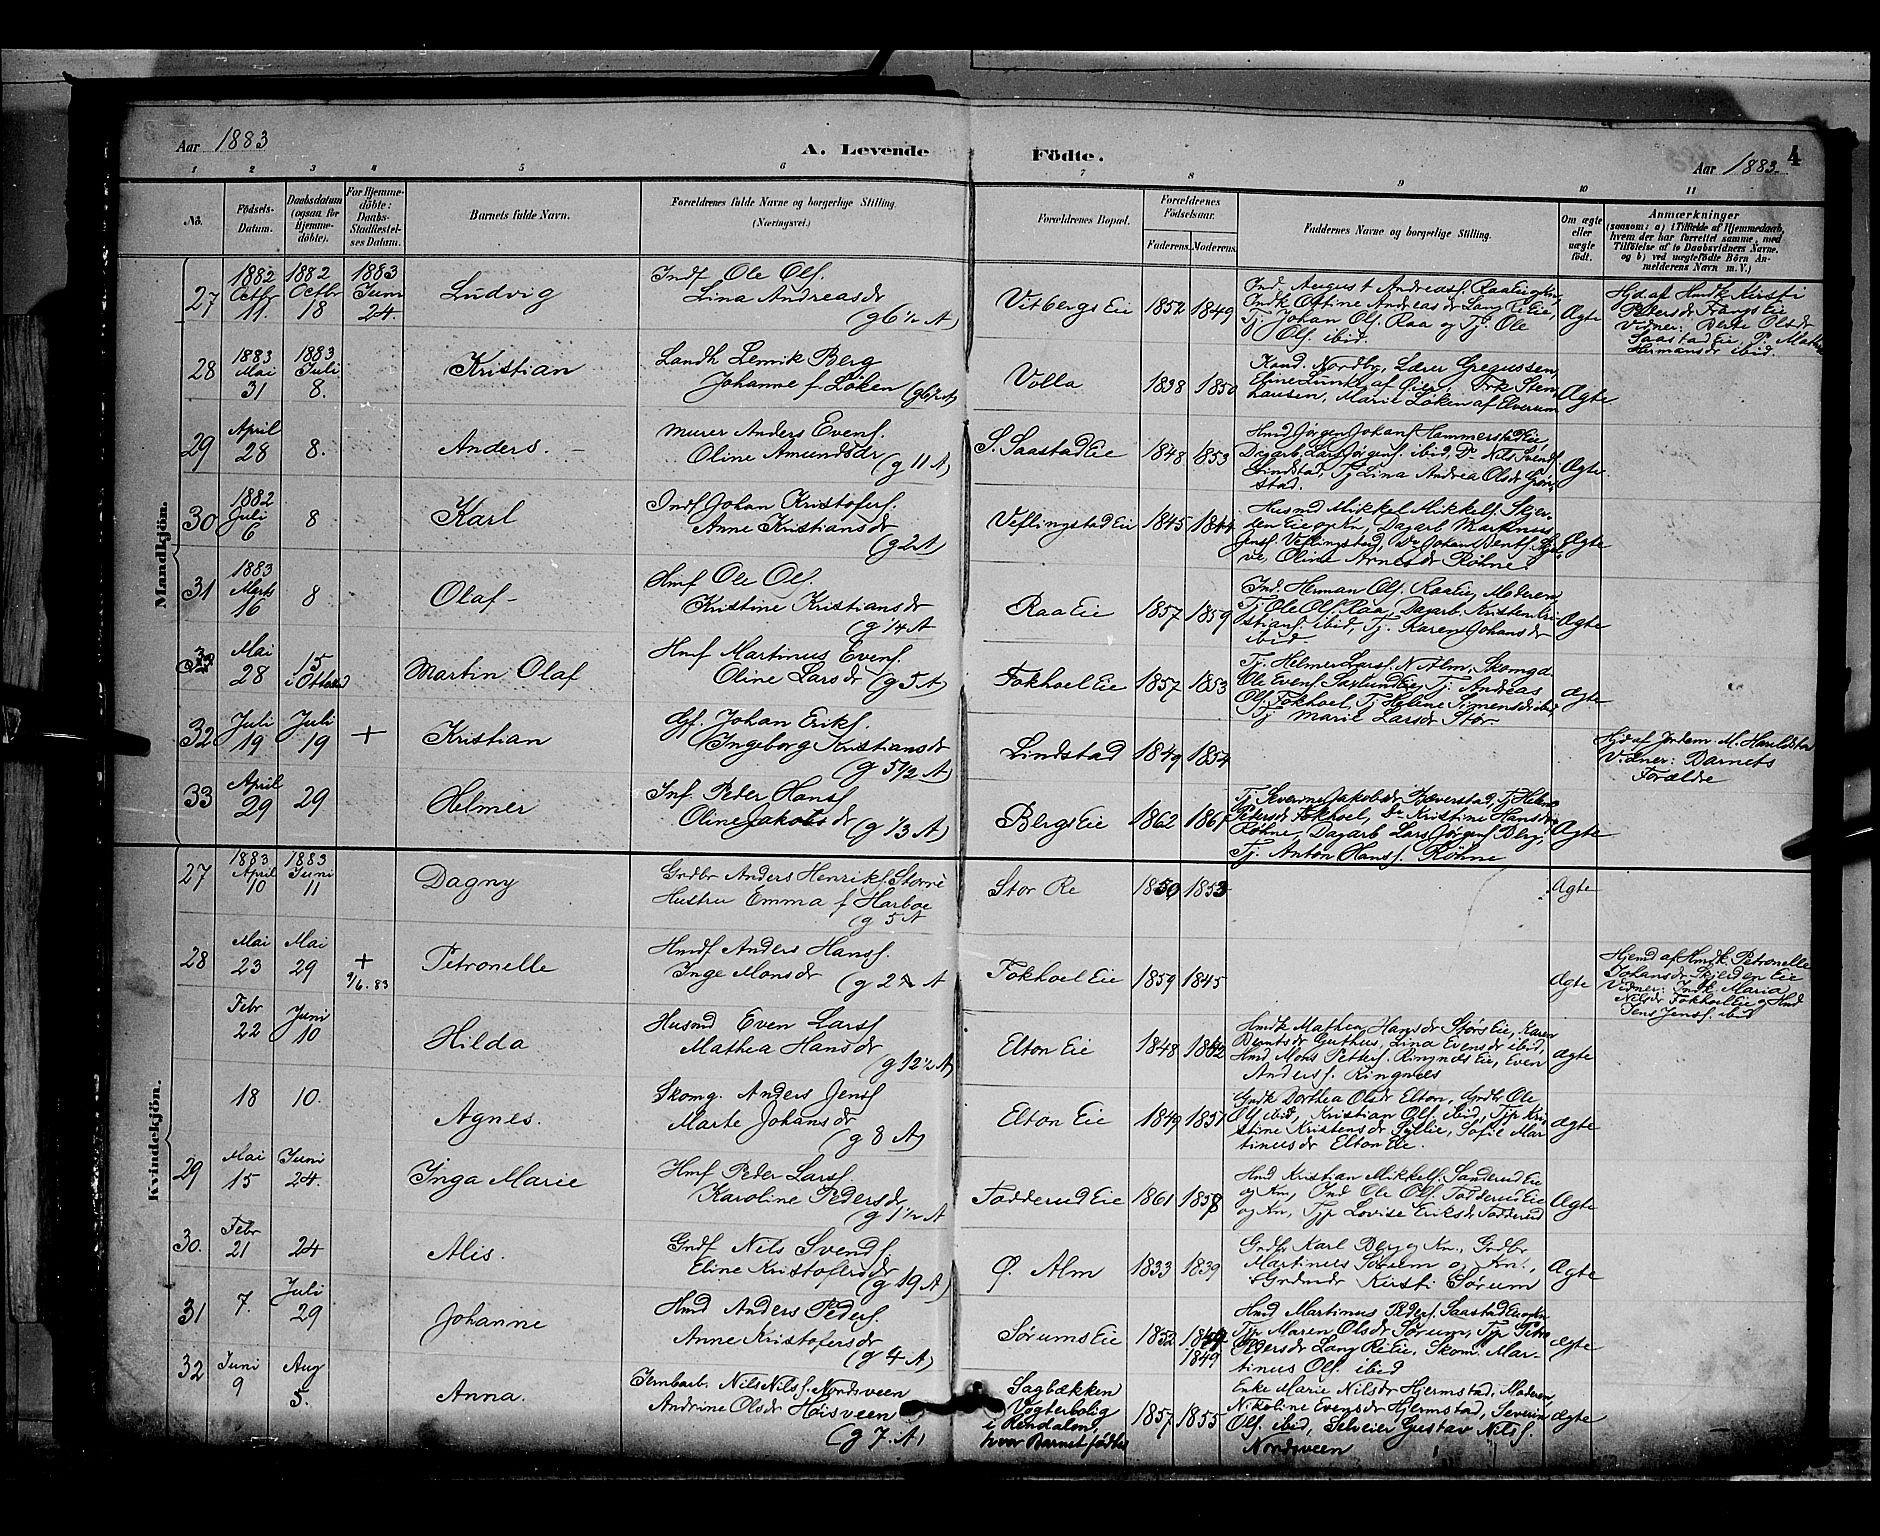 Aar 1883
A. Levende Födte.
4
Aar 1883
1 2 3 4 5 6 7 8 9 10 11
No.
Födsels-
Datum.
Daabsdatum
(ogsaa for
Hjemme-
döbte).
For Hjemme-
döbte:
Daabs-
Stadfæstel-
ses Datum.
Barnets fulde Navn.
Forældrenes fulde Navne og borgerlige Stilling
(Næringsvei.)
Forældrenes Bopæl.
Forældrenes
Födselsaar.
Faderens. Moderens.
Faddernes Navne og borgerlige Stilling.
Om ægte
eller
uægte
födt.
Anmærkninger
(saasom: a) i Tilfælde af Hjemmedaab,
hvem der har forrettet samme, med
Tilföielse af to Daabsvidners Navne,
og b) ved uægtefödte Börn An-
melderens Navn m. V.)
Mandkjön.
27
1882 Octbr 11.
1882 Octbr 18
1883 Juni 24.
Ludvig
Indf Ole Olf.
Lina Andreasdr
(g 6 1/2 A)
Vitbergs Eie 1852 1849
Ind August Andreasf. Raaeie
Indk Ottine Andreasdr Lang Re Eie,
Tj. Johan Olf. Raa og Tj. Ole
Olf. ibid.
Ægte
Hjd. af Hmdk Kirsti
Pedersdr Frangs Eie
Vidner: Berte Olsdr
Saastad Eie, P. Mathea
Hermansdr ibid.
28
1883 Mai 31
1883 Juli 8.
Kristian
Landh Lemik Berg
Johanne f Løken (g 6 1/2 A)
Volla 1838 1850
Kand. Nordby, Lærer Gregussen,
Eline Lunke af Øier, Frk Sten-
hausen, Marie Løken af Elverum
Ægte
29
April 28
8.
Anders. -
Murer Anders Evenf.
Oline Amundsdr (g 11 A)
S. Saastad Eie 1848 1853
Hmd Jørgen Johanf Hammerstad Eie,
Dagarb. Lars Jørgenf. ibid, Do Nils Svendf
Lindstad, Tj Lina Andrea Olsdr Grøn-
stad.
Ægte.
30
1882 Juli 6
8
Karl
Indf Johan Kristoferf.
Anne Kristiansdr
(g 2 A)
Veflingstad Eie 1845 1844
Husmd Mikkel Mikkelf. Skjer-
den Eie og Kn, Dagarb Martinus
Jensf. Veflingstad, Do Johan Jensf.
ve, Oline Arnesdr Røhne.
Ægte
31
1883 Marts 16
8
Olaf -
Hmf Ole Olf.
Kristine Kristiansdr
(g 1/4 A
Raa Eie 1857 1859
Ind. Herman Olf. Raaeie, Moderen
Tj Ole Olf. Raa, Dagarb. Kristen Kri-
stianf. ibid, Tj. Karen Johansdr
ibid.
Ægte
Mai 28
15 i Ottestad
Martin Olaf
Hmf Martinus Evenf.
Oline Larsdr (g 5 A)
Fokhoel Eie 1857 1853
Tj. Helmer Larsf. N. Alm, Skomgd.
Ole Evenf Saxlund Eie, Tj. Andreas
Olf. Fokhoel, Tj Heline Simensdr ibid,
Tj Marie Larsdr Stor.
ægte
32
Juli 19
Juli 19
+
Kristian
Gf. Johan Erikf.
Ingeborg Kristiansdr
(g 5 1/2 A)
Lindstad 1849 1854
Hjd af Jordem M. Haraldstad
Vidner: Barnets
Forældre
33
April 29
29
Helmer
Inf. Peder Hansf
Oline Jakobsdr (g 1/3 A)
Bergs Eie 1862 1861
Tj Severine Jakobsdr Bæverstad, Tj Helene
Pedersdr Fokhoel, Do Kristine Hansdr
Røhne, Dagarb Lars Jørgenf Berg,
Tj. Anton Hansf. Røhne
Ægte
Kvindekjön.
27
1883 April 10
1883 Juni 11
Dagny
Grdbr Anders Henrikf. Storre
Hustru Emma f Harboe
(g 5 A
Stor Re 1850 1853
Ægte
28
Mai 23
Mai 29
+
9/6.83
Petronelle
Hmdf Anders Hansf.
Inge Monsdr (g 2 A
Fokhoel Eie 1859 1845
Ægte
Hjemd af Hmdk Petronelle
Johansdr Skjerden Eie
Vidner: Indk. Maria
Nilsdr Fokhoel Eie og Hmd
Jens Jensf. ibid
Febr 22
Juni 10
Hilda
Husmd Even Larsf
Mathea Hansdr
(g 12 1/2 A)
Elton Eie 1848 1842
Hmdk Mathea Hansdr Størs Eie, Karen
Berntsdr Guthus, Lina Evensdr ibid,
Hmd Mons Petterf. Ringnes Eie, Even
Andersf. Ringnes
ægte
18
10.
Agnes.
Skomg. Anders Jensf
Marte Johansdr
(g 8 A)
Elton Eie 1849 1851
Grdk Dorthea Olsdr Elton, Grdbr Ole
Olf ibid, Kristian Olf. ibid, Tjp Kri-
stine Kristensdr Sillie, Sofie Mar-
tinusdr Elton Eie.
ægte
29
Mai 15
Juni 24
Inga Marie
Hmf Peder Larsf.
Karoline Pedersdr
(g 1 1/2 A
Fadderud Eie 1861 1858
Hmd Kristian Mikkelf. Sanderud Eie
og Kn, Ind Ole Olf. Fadderud Eie
og Kn, Tjp Lovise Eriksdr Fadderud
Ægte
30.
Febr 21
24
Alis.
Grdf Nils Svendf.
Eline Kristofersdr
(g 19 A)
Ø. Alm 1833 1839
Grdbr Karl Berg og Kn., Grdbr
Martinus Sørum og Kn.,
Grdmdr Kirsti Sørum
Ægte
31
7.
Juli 29
Johanne
Hmd Anders Pederf.
Anne Kristofersdr
(g 4 A)
Sørums Eie 1852 1849
Hmd Martinus Pederf. Saastad Eie og Kn
Tjp Maren Olsdr Sørum, Tjp Petra
Olsdr Lang Re Eie, Skom. Mar-
tinus Olf. ibid
ægte
32
Juni 9
Aug 5.
Anna.
Jernbarb. Nils Nilsf. Nordsveen
Andrine Olsdr Høisveen
(g 7. A)
Sagbækken
Vogterbolig
i Rendalen,
hvor Barnet fødtes
1857 1855
Enke Marie Nilsdr Hjermstad, Moderen,
Nikoline Evensdr Hjermstad, Severin
Olf. ibid, Selveier Gustav Nilsf.
Nordsveen
ægte